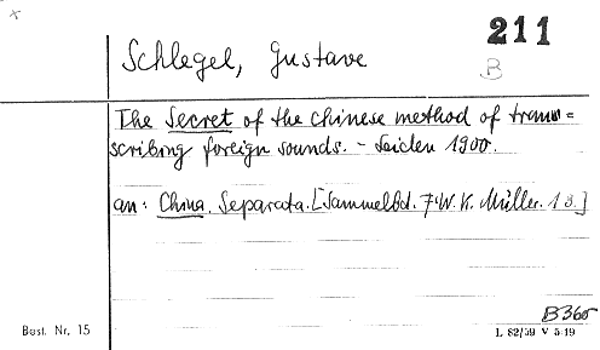 x
211
Schlegel, Gustave
B
The Secret of the chinese method of trans=
scribing foreign sounds. - Leiden 1900.
an: China. Separata. [Sammelbd. F. W. K. Müller. 13.]
B365
Best. Nr. 15
L 82/59 V 5 19